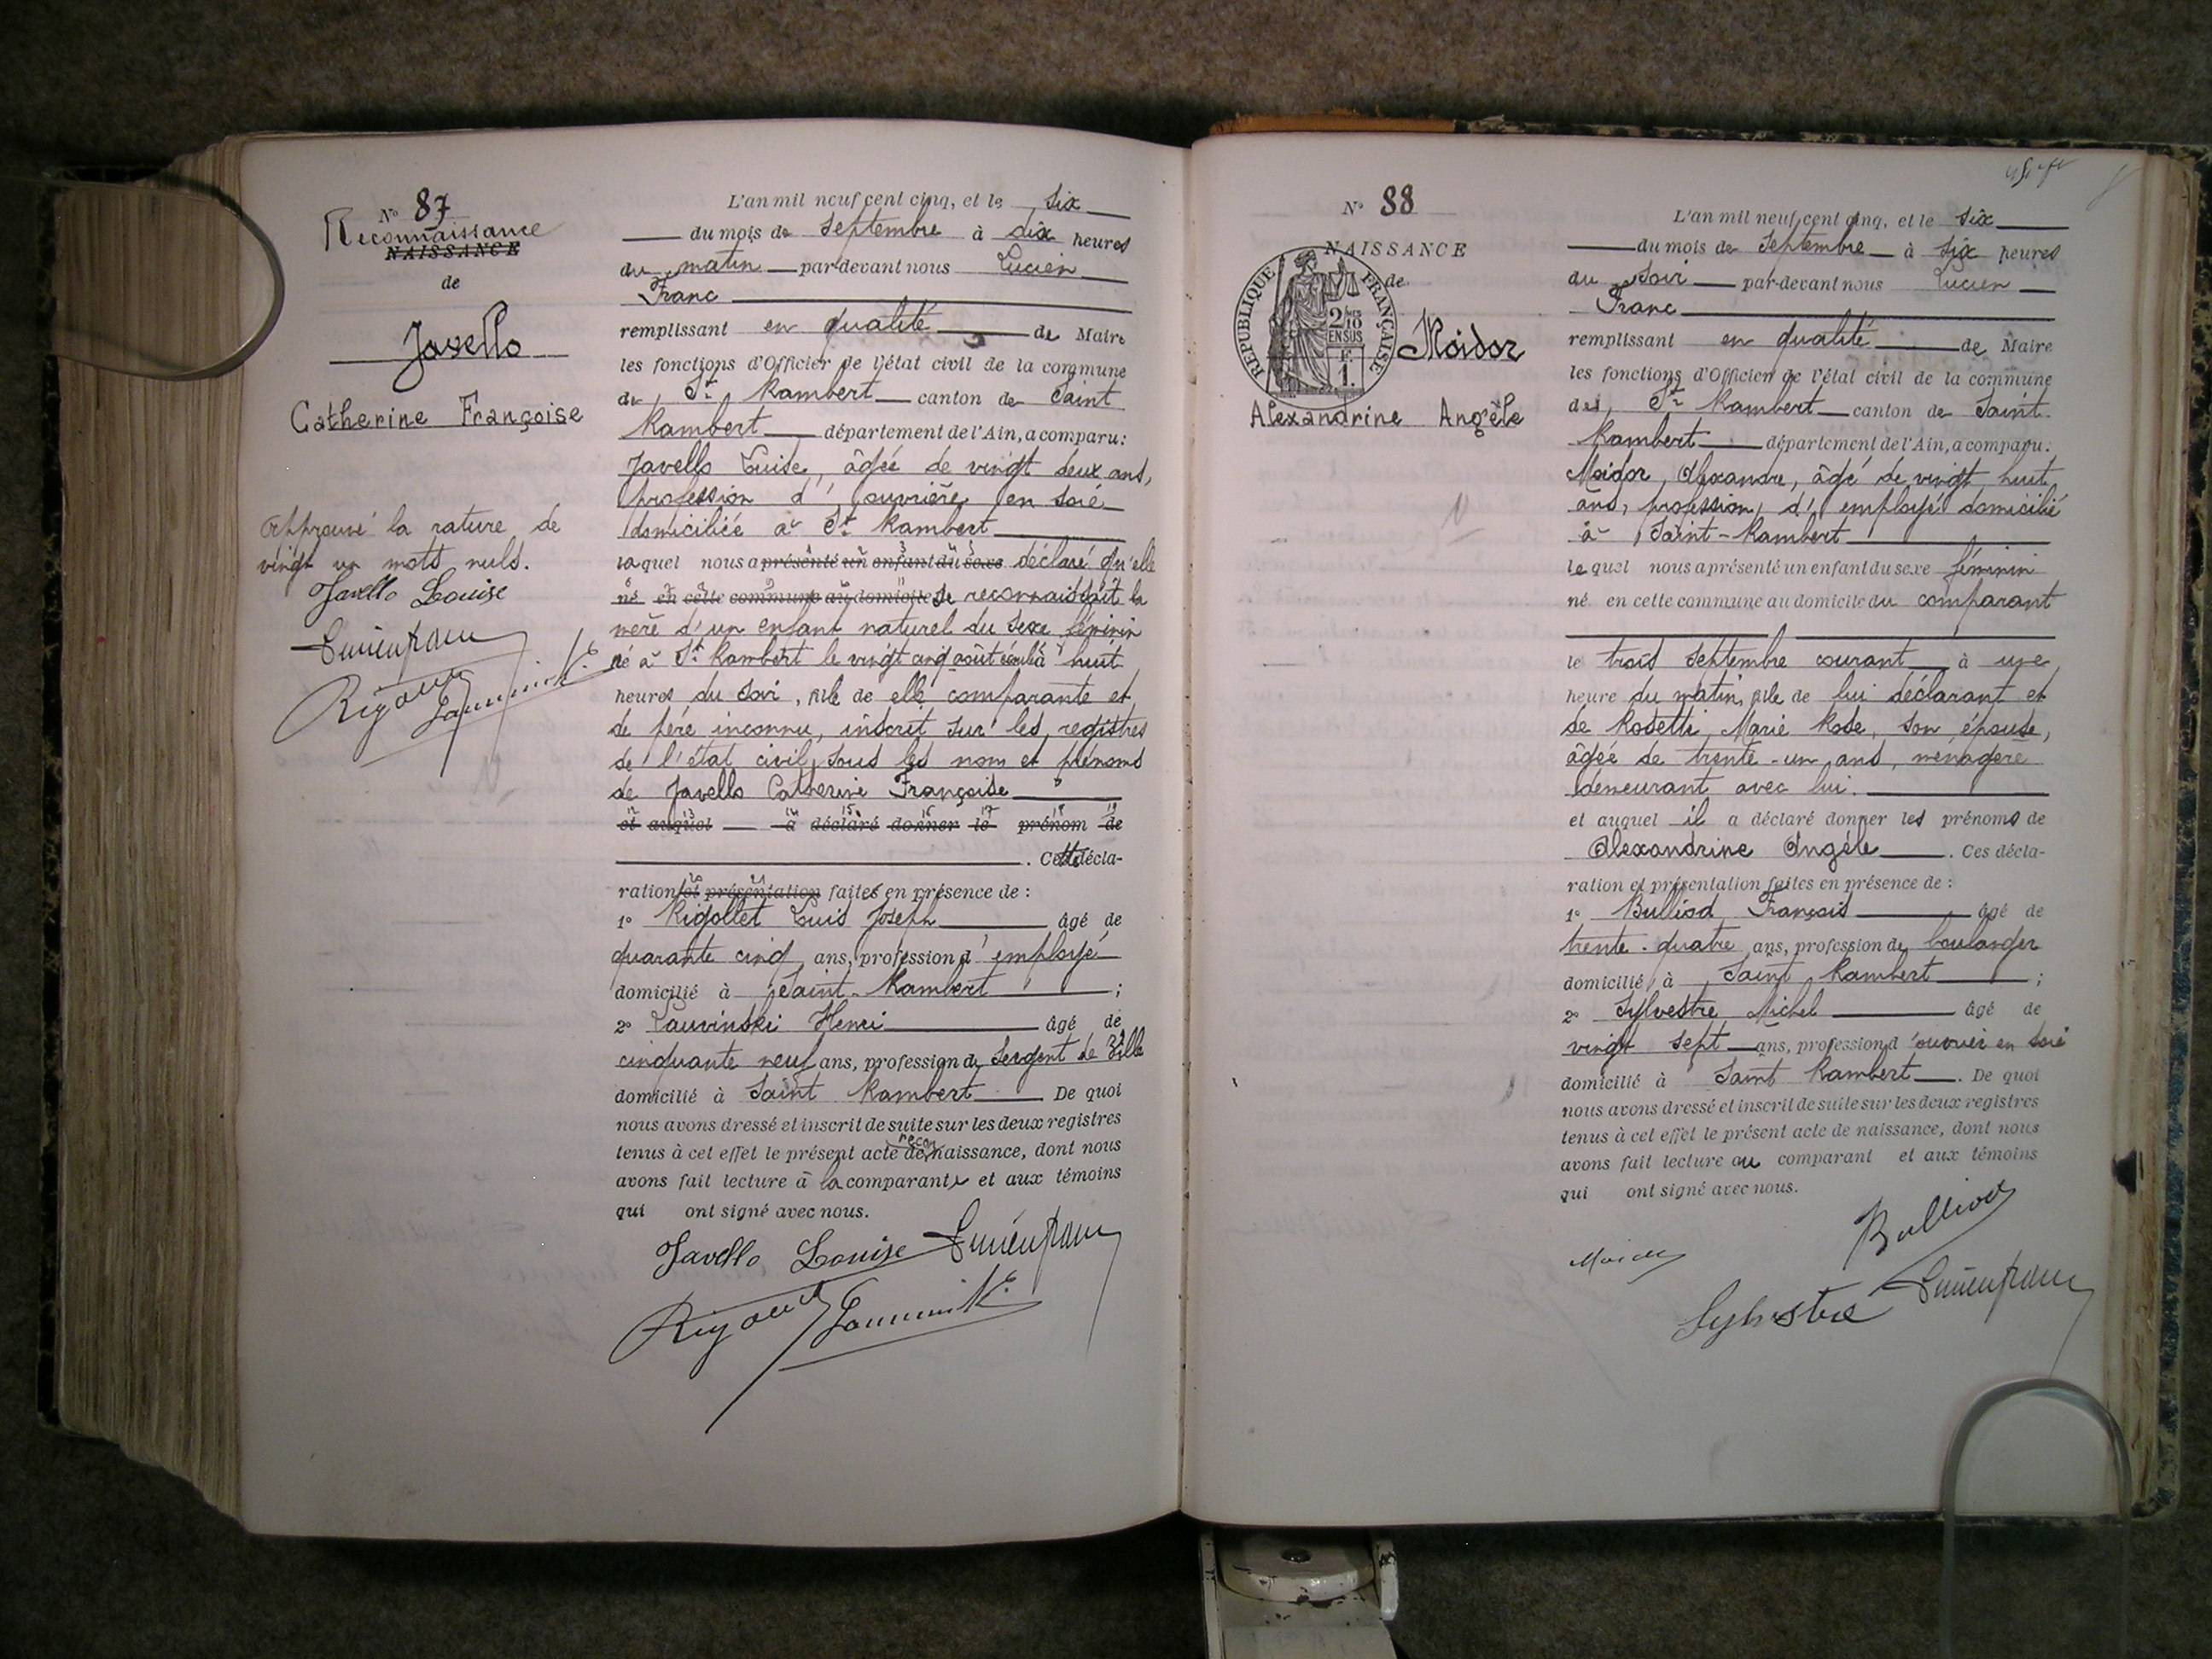 N° 87
Reconnaissance
NAISSANCE
de
Javello
Catherine Françoise
Approuvé la rature de
vingt un mots nuls.
Javello Louise
L'an mil neuf cent cinq, et le six
du mois de Septembre à dix heures
du matin par-devant nous Lucien
Franc
remplissant en qualité de Maire
les fonctions d'Officier de l'état civil de la commune
de St Rambert canton de Saint
Rambert département de l'Ain, a comparu:
Javello Luise, âgée de vingt deux ans,
profession d' ouvrière en soie
domiciliée à St Rambert
laquel nous a présenté un enfant du sexe déclaré qu'elle
né en cette commune au domicile se reconnaissait la
mère d'un enfant naturel du sexe féminin
né à St Rambert le vingt cinq août écoulé à huit
heures du soir, née de elle comparante et
de père inconnu, inscrit sur les registres
de l'état civil, sous les nom et prénoms
de Javello Catherine Françoise
et auquel a déclaré donner le prénom de
. Cette décla-
ration et présentation faites en présence de :
1° Rigollet Luis Joseph âgé de
quarante cinq ans, profession d' employé
domicilié à Saint-Rambert ;
2° Lauvinski Henri âgé de
cinquante neuf ans, profession de Sergent de Ville
domicilié à Saint Rambert De quoi
nous avons dressé et inscrit de suite sur les deux registres
tenus à cet effet le présent acte de reconnaissance, dont nous
avons fait lecture à la comparante et aux témoins
qui ont signé avec nous.
Javello Louise
N° 88
NAISSANCE
de
RÉPUBLIQUE FRANÇAISE
2/10
EN SUS
1 F.
Moidor
Alexandrine Angèle
L'an mil neuf cent cinq, et le six
du mois de Septembre à six heures
du soir par-devant nous Lucien
Franc
remplissant en qualité de Maire
les fonctions d'Officier de l'état civil de la commune
de St Rambert canton de Saint
Rambert département de l'Ain, a comparu:
Moidor, Alexandre, âgé de vingt huit
ans, profession, d' employé domicilié
à Saint-Rambert
lequel nous a présenté un enfant du sexe féminin
né en cette commune au domicile du comparant
le trois septembre courant à une
heure du matin, née de lui déclarant et
de Rosetti Marie Rose, son épouse,
âgée de trente-un ans, ménagère
demeurant avec lui.
et auquel il a déclaré donner les prénoms de
Alexandrine Angèle . Ces décla-
ration et présentation faites en présence de :
1° Bulliod François âgé de
trente-quatre ans, profession de boulanger
domicilié à Saint Rambert ;
2° Sylvestre Michel âgé de
vingt sept ans, profession d'ouvrier en soie
domicilié à Saint Rambert . De quoi
nous avons dressé et inscrit de suite sur les deux registres
tenus à cet effet le présent acte de naissance, dont nous
avons fait lecture au comparant et aux témoins
qui ont signé avec nous.
Bulliod
Moidor
Sylvestre